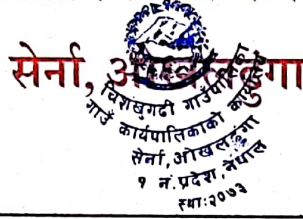 सेर्ना, ओखलढुंगा
चिशंखुगढी गाउँपालिका
गाउँ कार्यपालिकाको कार्यालय
सेर्ना, ओखलढुंगा
१ नं. प्रदेश, नेपाल
स्था:२०७३